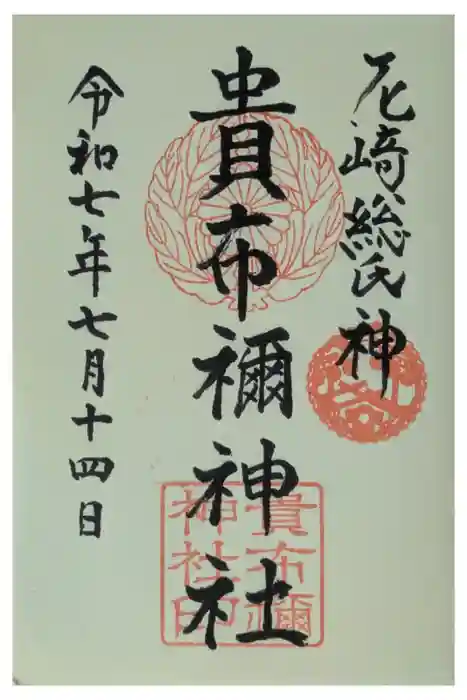 尼崎総氏神
貴布禰神社
令和七年七月十四日
貴布禰
神社印